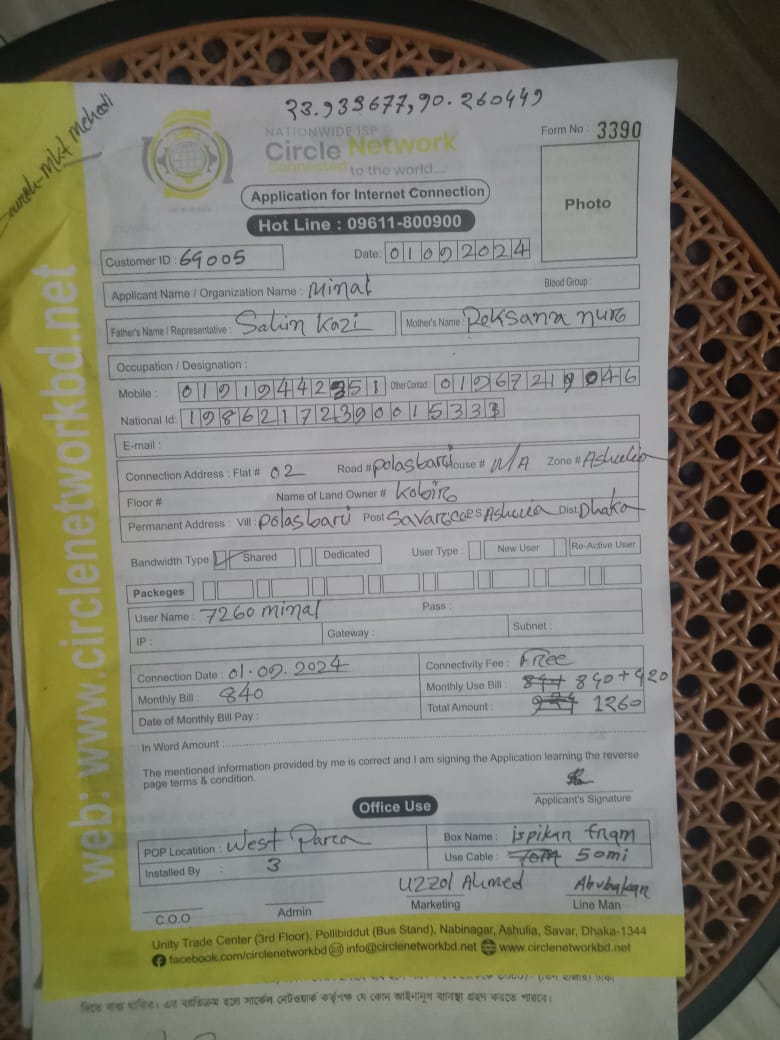 23.933677,90.260449
mkt Mehedi
NATIONWIDE ISP
Circle Network
Connected to the world....
Form No : 3390
Photo
Application for Internet Connection
Hot Line : 09611-800900
Customer ID : 69005
Date: 01092024
Applicant Name / Organization Name : Minal
Blood Group :
Father's Name / Representative : Salim Kazi Mother's Name : Roksana nuro
Occupation / Designation :
Mobile : 01919442351 Other Contact : 01967219046
National Id: 19862172390015333
E-mail :
Connection Address : Flat # 02 Road # Polasbari House # N/A Zone # Ashulia
Floor # Name of Land Owner # Kobiro
Permanent Address : Vill : Polasbari Post Savar Ashulia Dist Dhaka
Bandwidth Type Shared Dedicated User Type : New User Re-Active User
Packeges
User Name : 7260 minal Pass :
IP : Gateway : Subnet :
Connection Date : 01.09.2024 Connectivity Fee : Free
Monthly Bill : 840 Monthly Use Bill : 840+420
Date of Monthly Bill Pay : Total Amount : 1260
In Word Amount :
The mentioned information provided by me is correct and I am signing the Application learning the reverse
page terms & condition.
Applicant's Signature
Office Use
POP Locatition : West Parca Box Name : ispikan fram
Installed By : 3 Use Cable : 50mi
Uzzol Ahmed Abubakan
C.O.O Admin Marketing Line Man
Unity Trade Center (3rd Floor), Pollibiddut (Bus Stand), Nabinagar, Ashulia, Savar, Dhaka-1344
facebook.com/circlenetworkbd info@circlenetworkbd.net www.circlenetworkbd.net
web: www.circlenetworkbd.net
দিতে বাধ্য থাকিব। এর ব্যতিক্রম হলে সার্কেল নেটওয়ার্ক কর্তৃপক্ষ যে কোন আইনানুগ ব্যবস্থা গ্রহণ করতে পারবে।